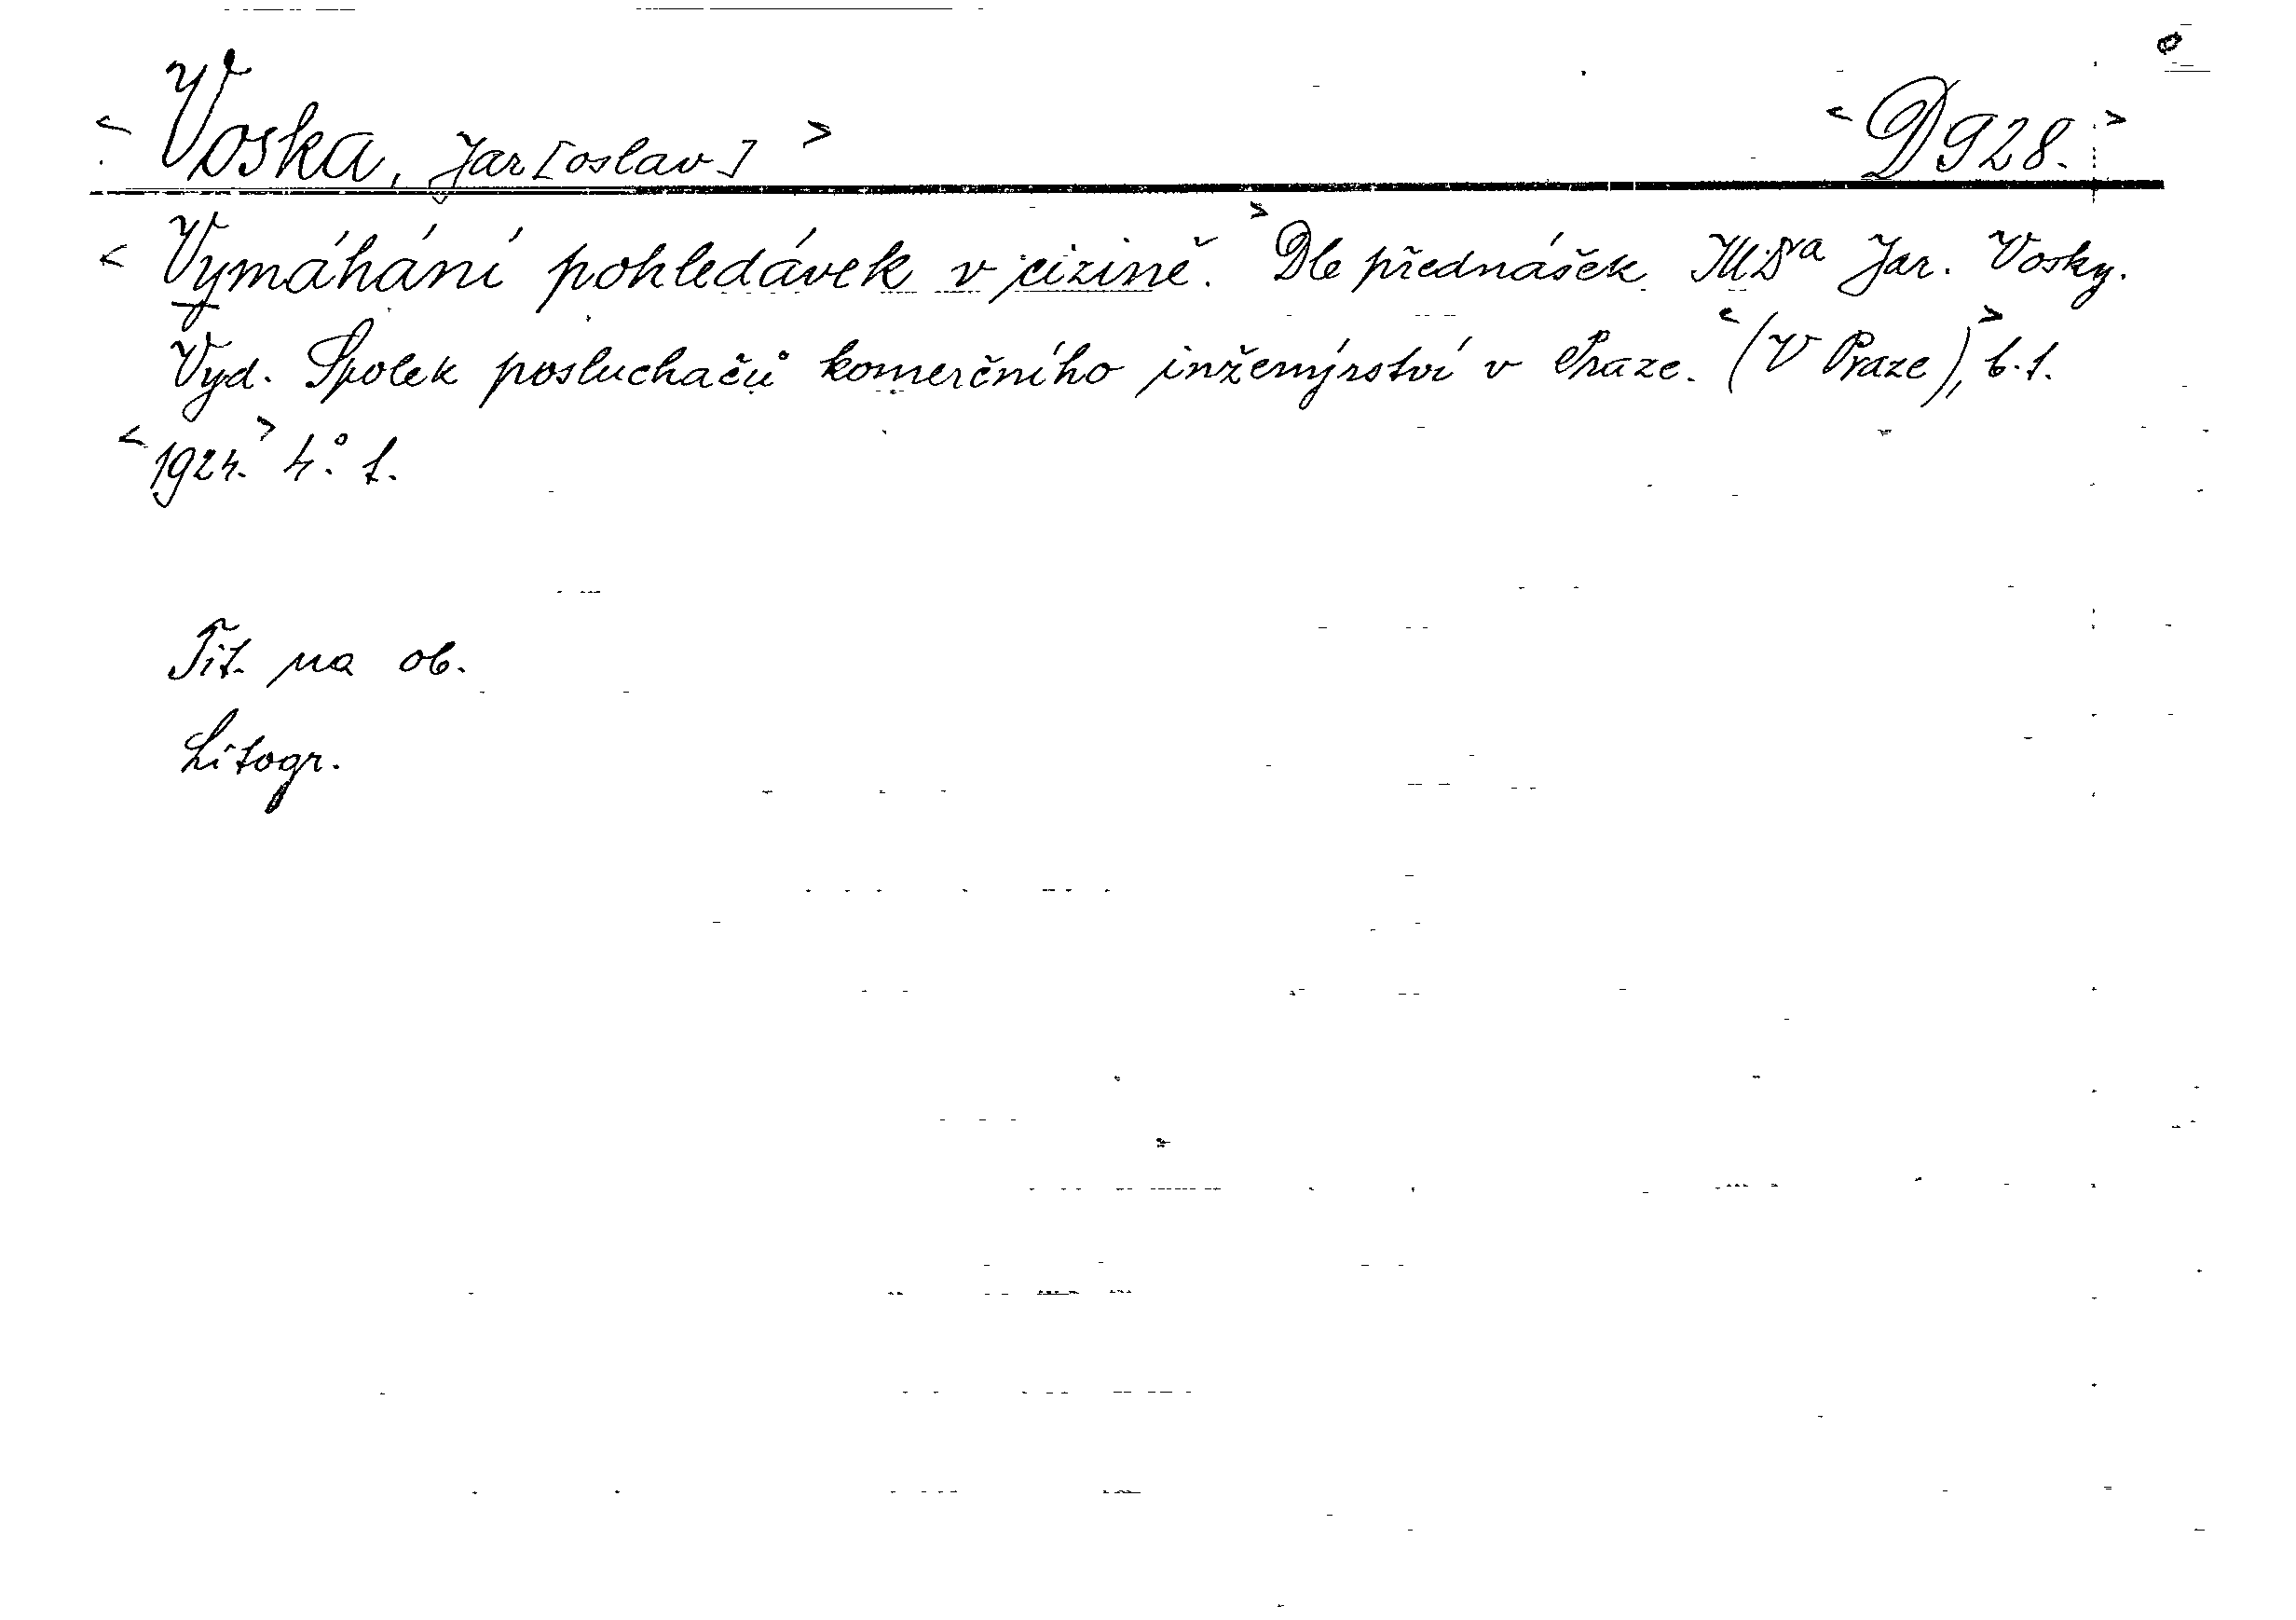 < Voska, Jar[oslav] > < D 928. >
< Vymáhání pohledávek v cizině. > Dle přednášek JUDra Jar. Vosky.
Vyd. Spolek posluchačů komerčního inženýrství v Praze. < (V Praze), > b. t.
< 1924. > 4° t.
Tit. na ob.
Litogr.